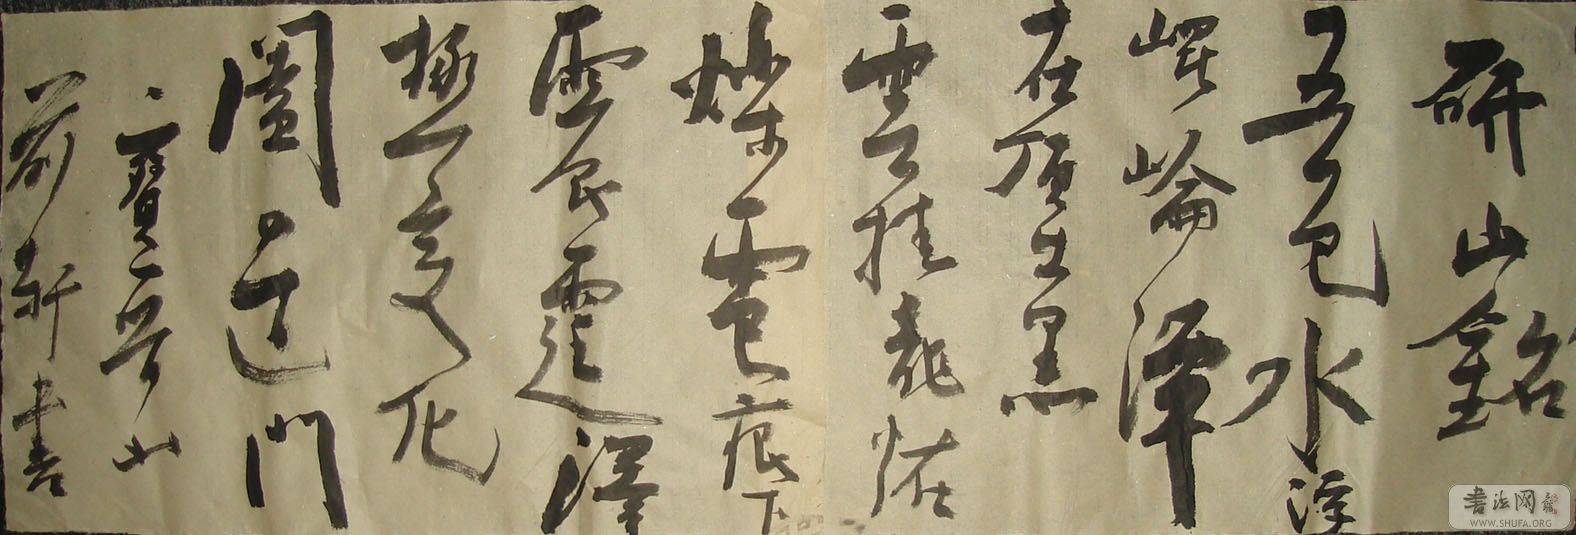 研山銘
五色水浮
崐崘潭
在頂出黑
雲挂龍怪
爍電痕下
震霆澤
極變化
闔道門
寶晉山
前軒書
書法网
WWW.SHUFA.ORG